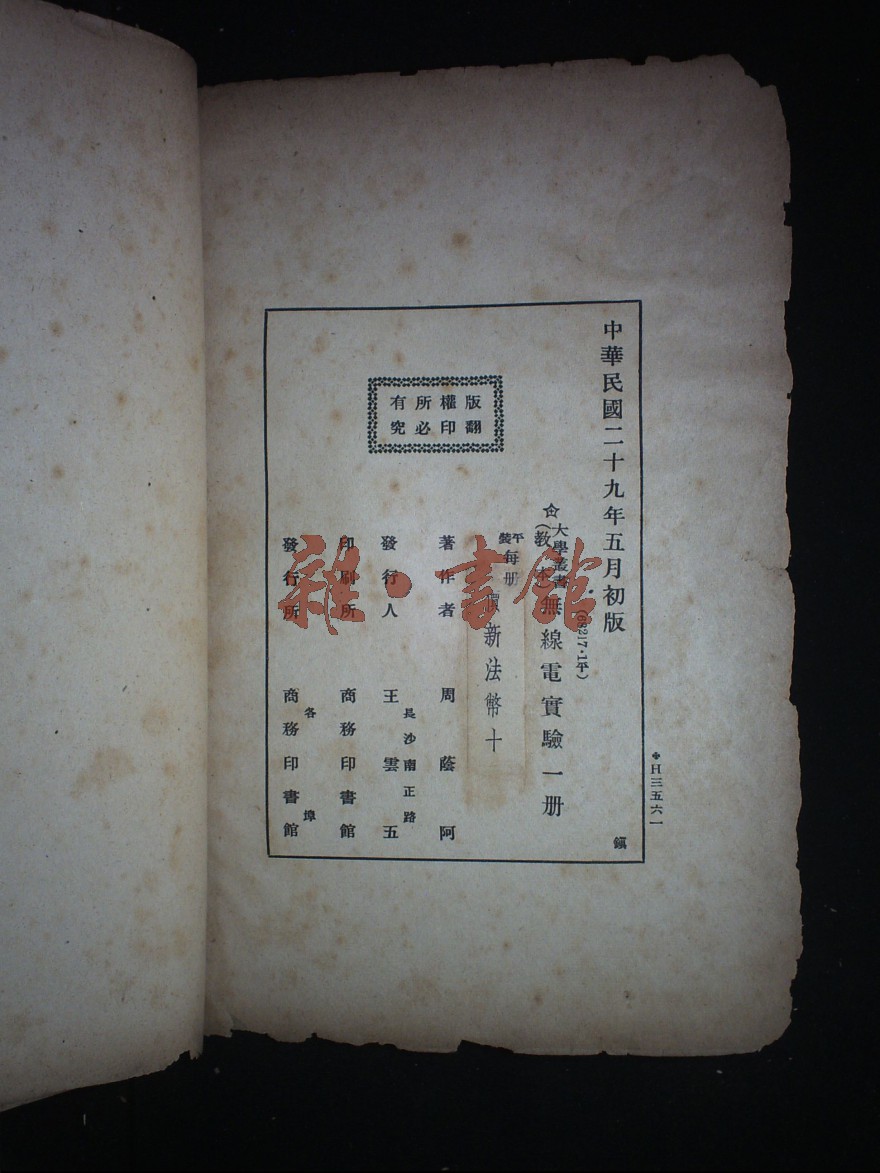 中華民國二十九年五月初版
(68217·1平)
大學叢書
(教本)
無線電實驗一册
平裝
每册
價新法幣十
著作者 周蔭阿
長沙南正路
發行人 王雲五
印刷所 商務印書館
各埠
發行所 商務印書館
版權所有
翻印必究
H三五六一
鎭
雜·書館